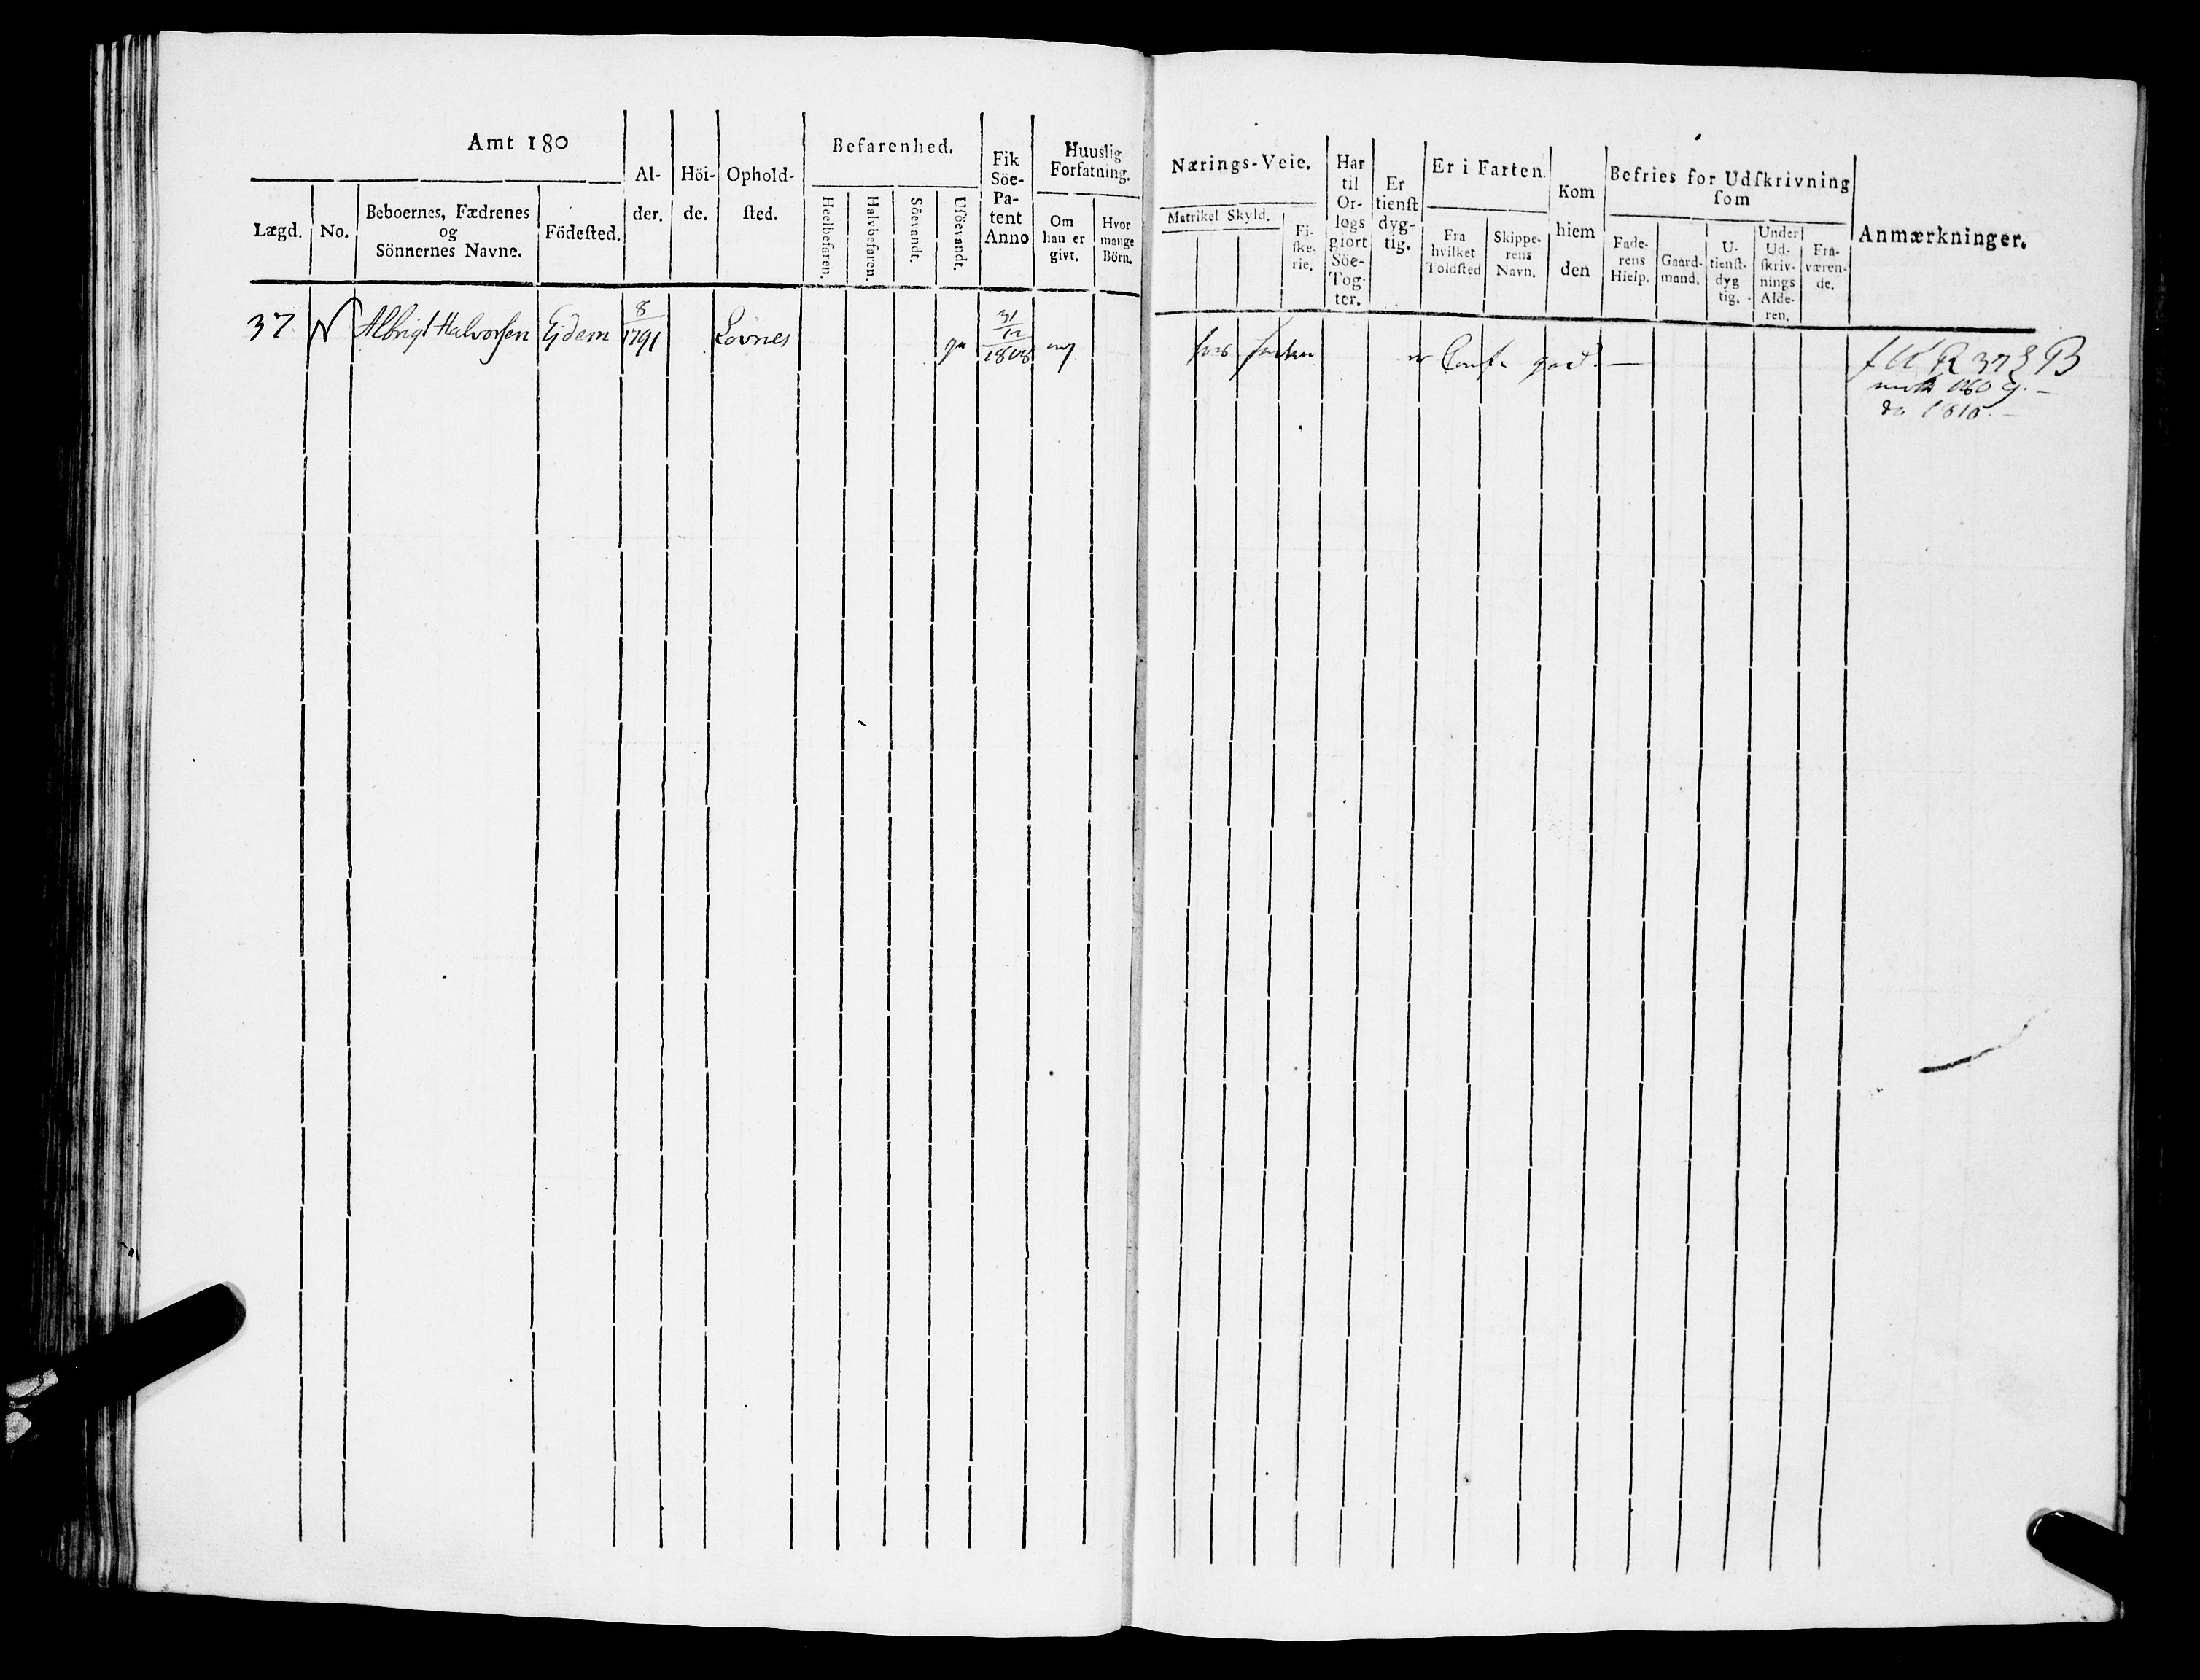 Amt 180
Lægd.
No.
Beboernes, Fædrenes
og
Sönnernes Navne.
Födeſted.
Al-
der.
Höi-
de.
Ophold-
ſted.
Befarenhed.
Heelbefaren.
Halvbefaren.
Söevandt.
Uſöevandt.
Fik
Söe-
Pa-
tent
Anno
Huuslig
Forfatning.
Om
han er
givt.
Hvor
mange
Börn.
37 N Albrigt Halvorsen 8/1791 Lovnes 31/12 1808
Nærings-Veie.
Matrikel Skyld.
Fi-
ſke-
rie.
Har
til
Or-
logs
giort
Söe-
Tog-
ter.
Er
tienſt
dyg-
tig.
Er i Farten.
Fra
hvilket
Toldſted
Skippe-
rens
Navn.
Kom
hiem
den
Befries for Udſkrivning
ſom
Fade-
rens
Hielp.
Gaard-
mand.
U-
tienſt-
dyg
tig.
Under
Ud-
ſkriv-
nings
Alde-
ren.
Fra-
væren-
de.
Anmærkninger.
37
do 1810.